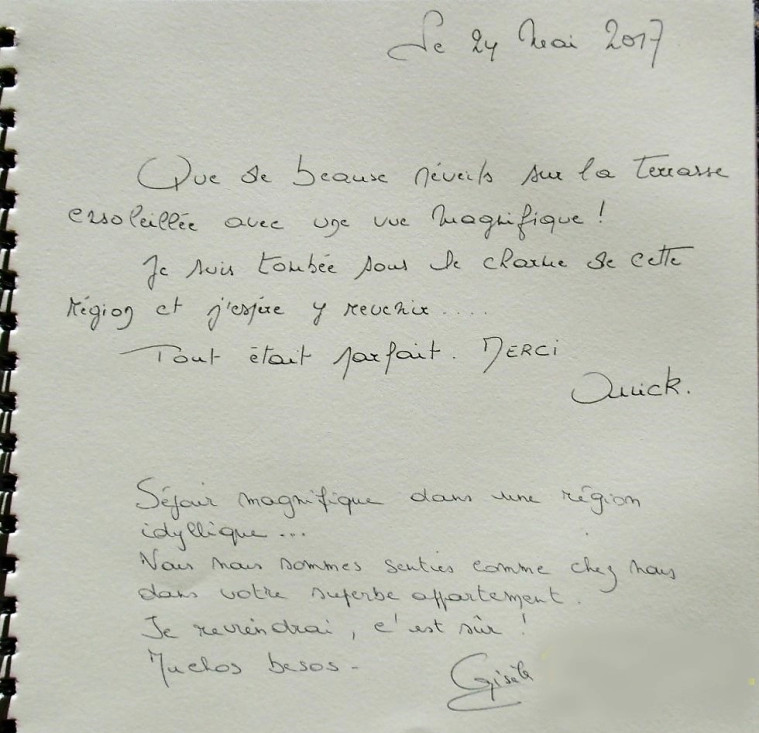 Le 24 Mai 2017
Que de beaux réveils sur la Terrasse
ensoleillée avec une vue magnifique !
Je suis tombée sous le charme de cette
région et j'espère y revenir ....
Tout était parfait. MERCI
Séjour magnifique dans une région
idyllique...
Nous nous sommes senties comme chez nous
dans votre superbe appartement.
Je reviendrai, c'est sûr !
Muchos besos -
Gisèle